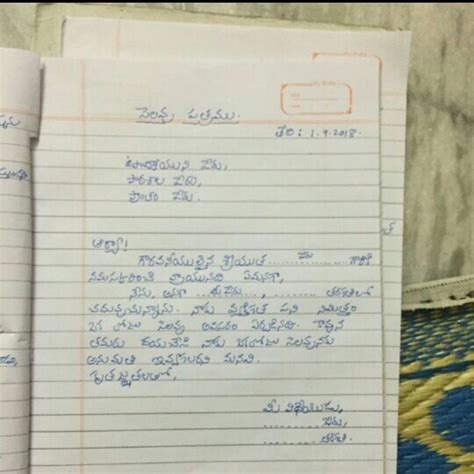 సెలవు పత్రము.
తేది : 1.9.2018.
ఉపాధ్యాయుని పేరు,
పాఠశాల పేరు,
ప్రాంతం పేరు.
ఆర్యా!
గౌరవనీయులైన శ్రీయుత ....పేరు........ గారికి
నమస్కరించి వ్రాయునది ఏమనగా,
నేను, అనగా ....మీ పేరు...., ........... తరగతిలో
చదువుచున్నాను. నాకు వ్యక్తిగత పని నిమిత్తం
ఒక రోజు సెలవు అవసరం ఏర్పడినది. కావున
తమరు దయచేసి నాకు ఒకరోజు సెలవునకు
అనుమతి ఇవ్వగలరని మనవి.
కృతజ్ఞతలతో,
మీ విధేయుడు,
..........పేరు,
..........తరగతి.